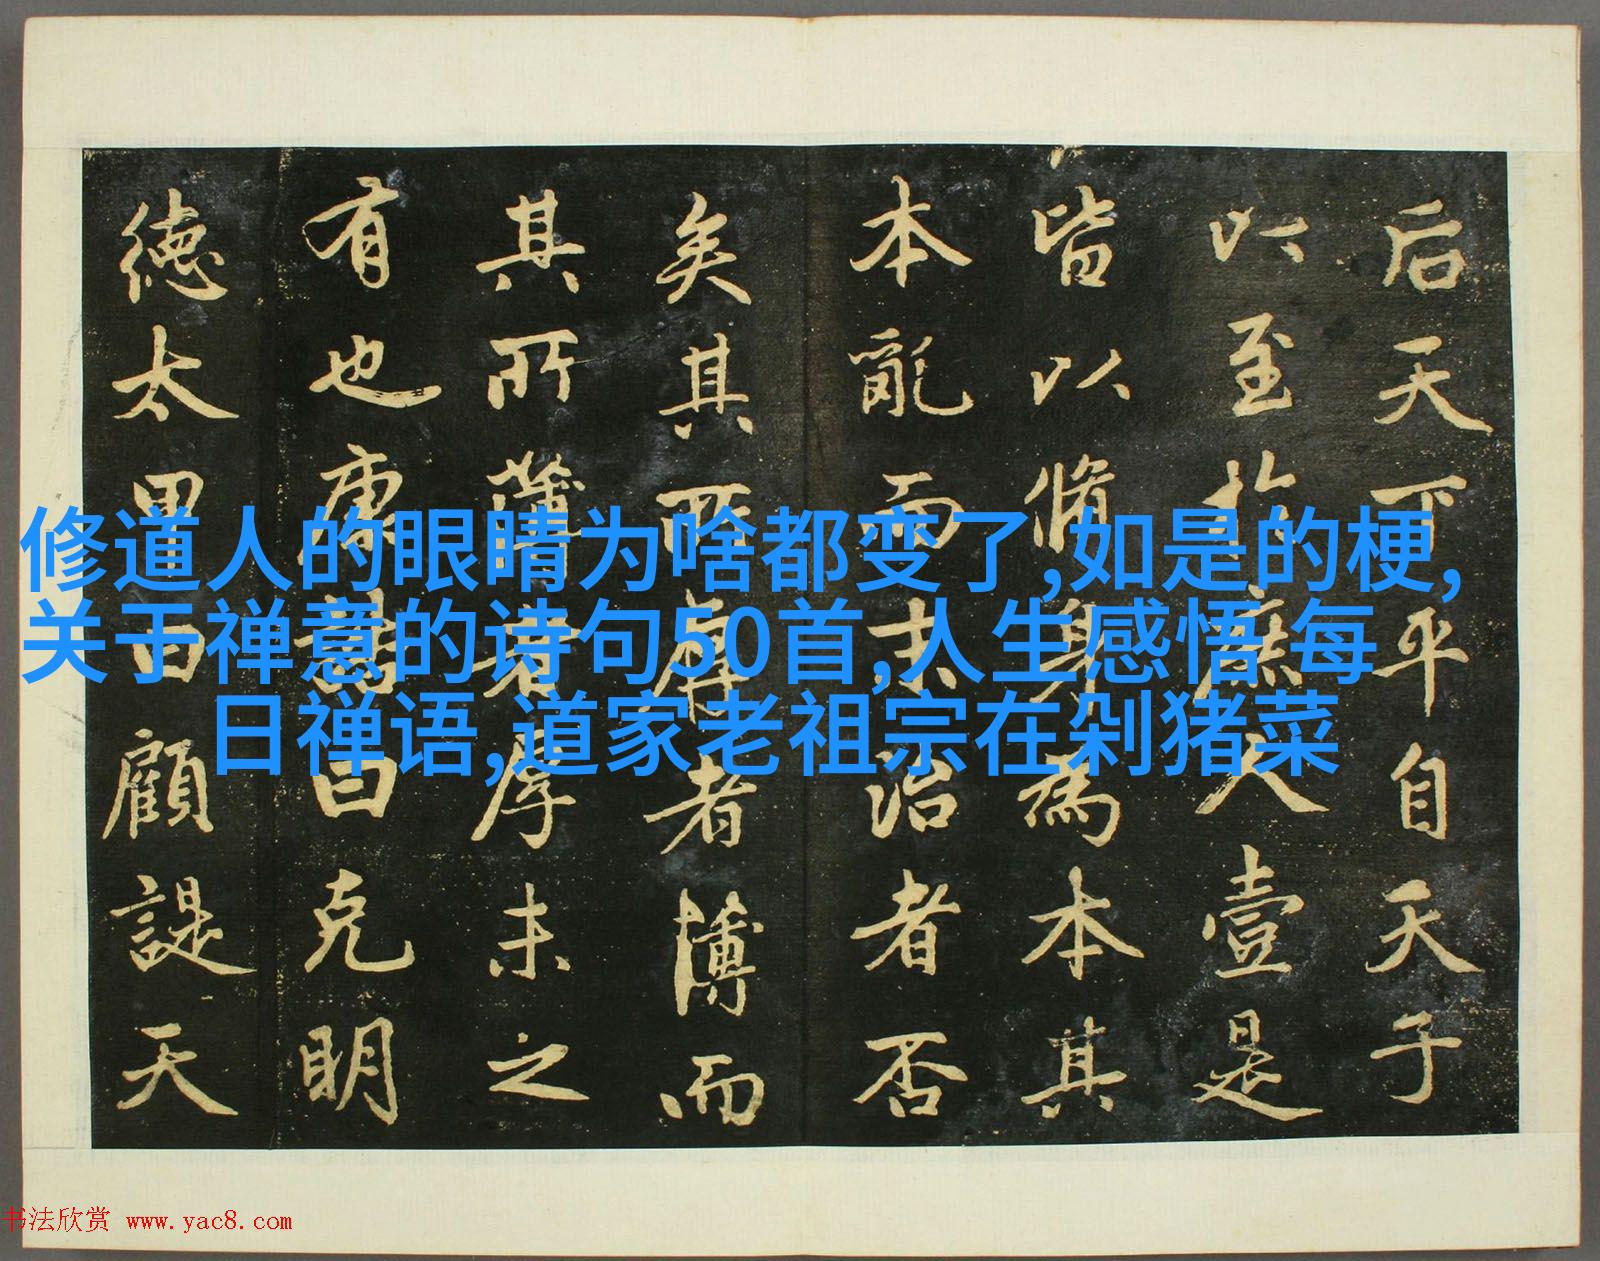 修道人的眼睛为啥都变了,如是的梗,
关于禅意的诗句50首,人生感悟 每
日禅语,道家老祖宗在剁猪菜
后天下平自天子
以至於庶人壹是
皆以脩身為本其
本亂而末治者否
矣其所厚者薄而
其所薄者厚未之
有也康誥曰克明
德太甲曰顧諟天
书法欣赏 www.yac8.com